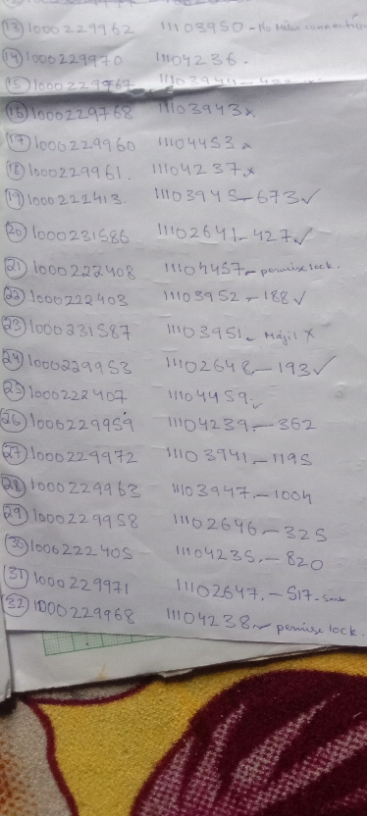 (13) 1000229962 11103950 - No
(14) 1000229970 11104236.
(15) 1000229967
(16) 1000229768 11103943 x
(17) 1000229960 11104453 x
(18) 1000229961. 11104237. x
(19) 1000222413 11103945 - 673 ✓
(20) 1000231586 11102641 - 427 ✓
(21) 1000222408 11104457 - permise lock.
(22) 1000222403 11103952 - 188 ✓
(23) 1000231587 11103951 - x
(24) 1000229953 11102648 - 193 ✓
(25) 1000222407 11104459.
(26) 1000229959 11104239. - 362
(27) 1000229972 11103941. - 1195
(28) 1000229963 11103947. - 1004
(29) 1000229958 11102646 - 325
(30) 1000222405 11104235. - 820
(31) 1000229971 11102647. - 517 -
(32) 1000229968 11104238 - permise lock.